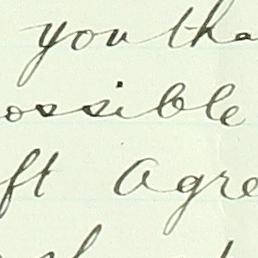 you tha
ossible
ft Agre